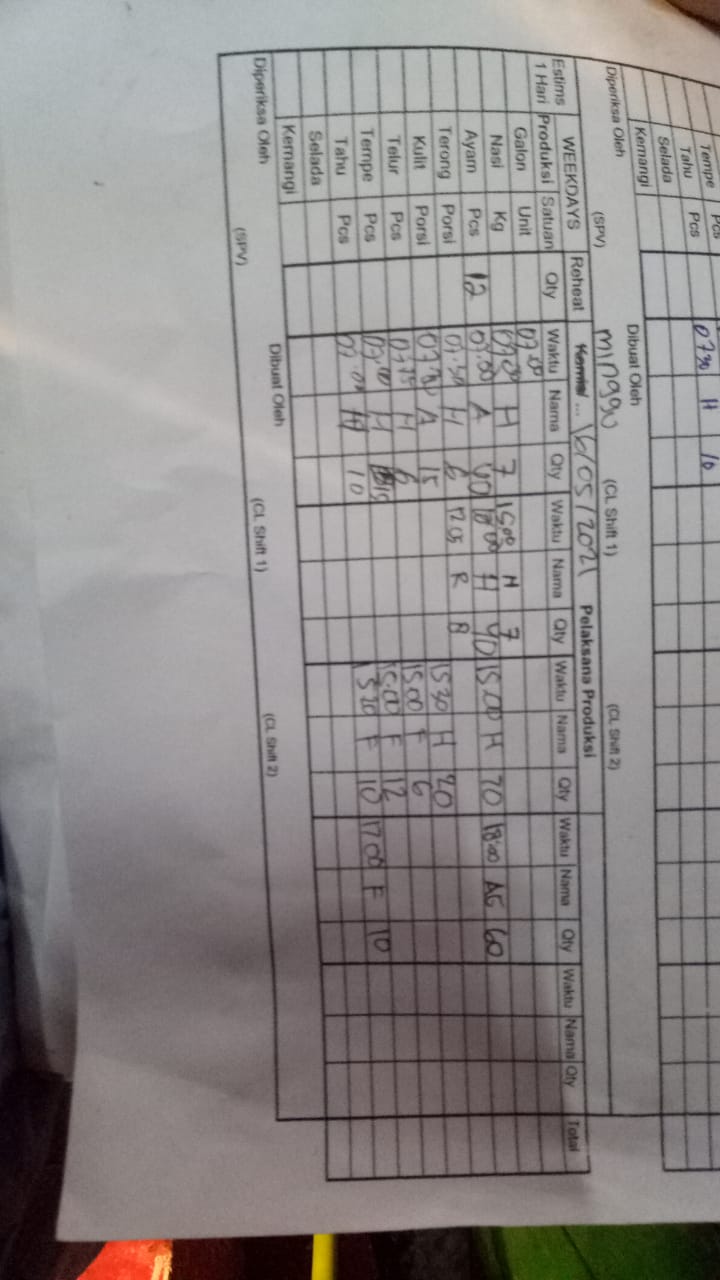 Tempe Pcs
Tahu Pcs 0730 H 10
Selada
Kemangi
Diperiksa Oleh Dibuat Oleh
(SPV) (CL Shift 1) (CL Shift 2)
minggu
Estims 1 Hari WEEKDAYS Reheat ... 16/05/2021 Pelaksana Produksi
Produksi Satuan Qty Waktu Nama Qty Waktu Nama Qty Waktu Nama Qty Waktu Nama Qty Waktu Nama Qty Total
Galon Unit 07.00
Nasi Kg 07.00 H 7 15.00 H 7
Ayam Pcs 12 07.00 A 40 H 40 15.00 H 70 18.00 AG 60
Terong Porsi 07.30 H 6 R 8
Kulit Porsi A 15 15 30 H 20
Telur Pcs 07.15 H 6 15.00 F 6
Tempe Pcs 07.00 H 15.00 F 12
Tahu Pcs 07.00 H 10 F 10 17.00 F 10
Selada
Kemangi
Diperiksa Oleh Dibuat Oleh
(SPV) (CL Shift 1) (CL Shift 2)